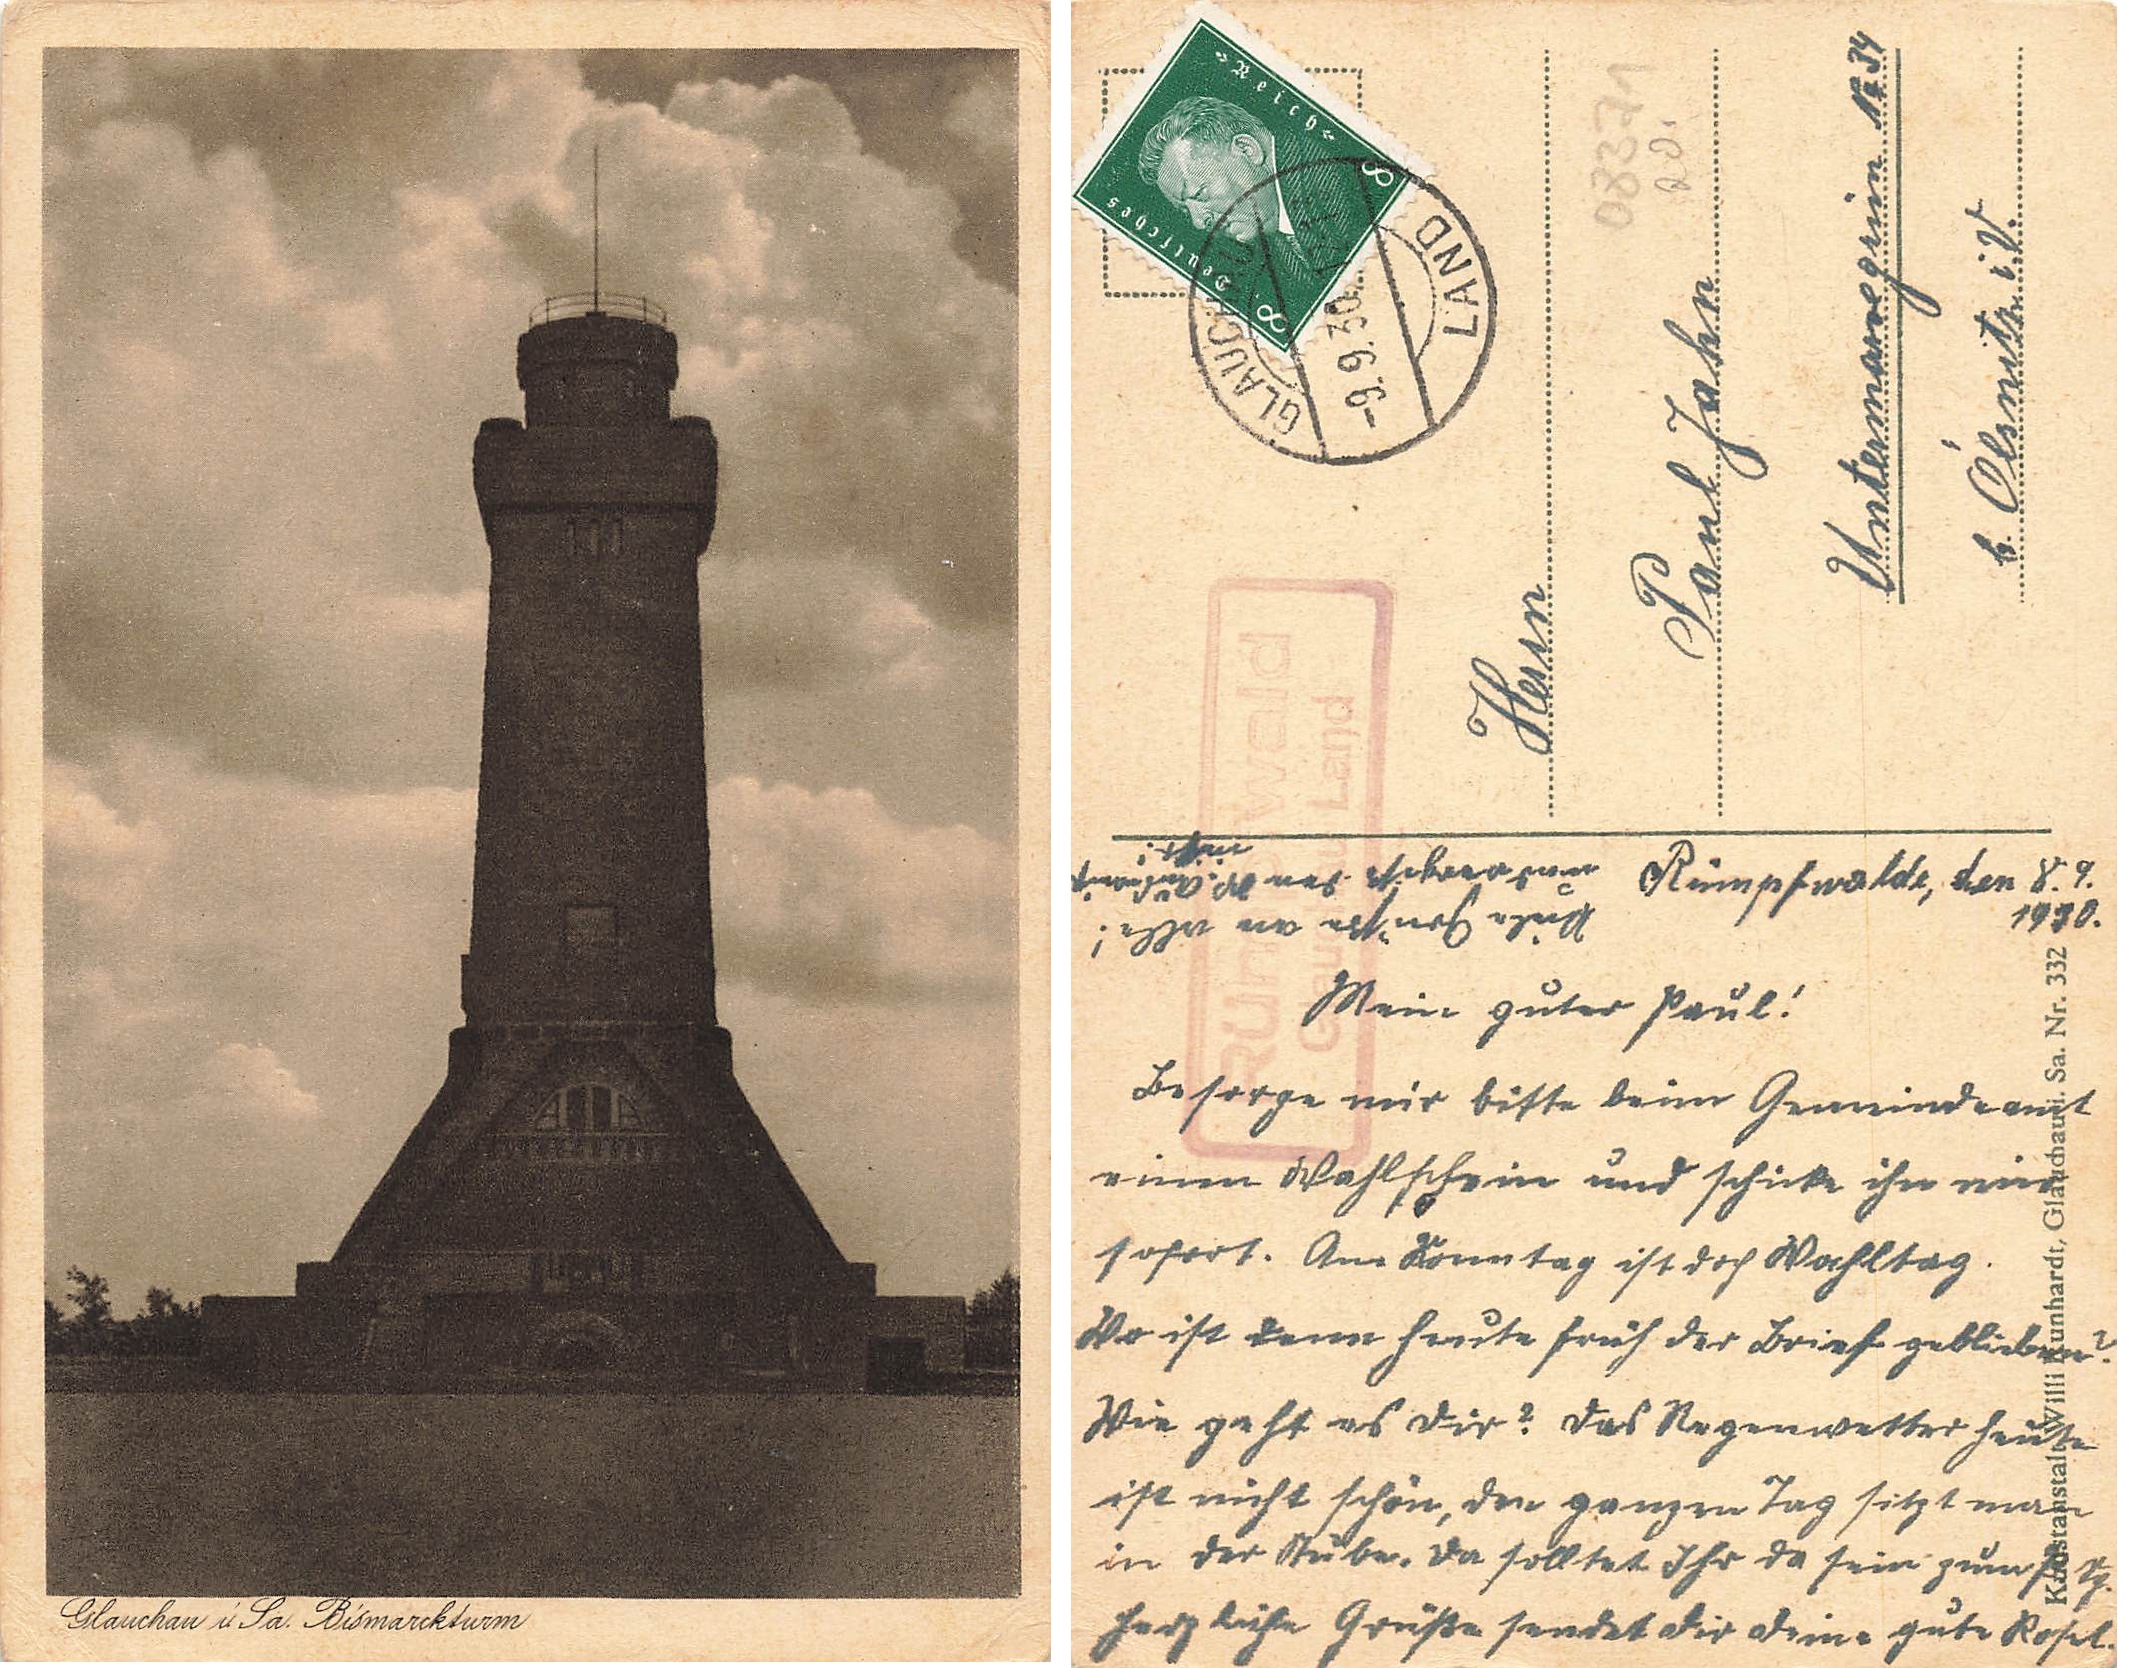 Glauchau i. Sa. Bismarckturm
Deutsches Reich
8 8
GLAUCHAU LAND
-9.9.30
08371
Rümpfwald
Glauchau Land
Herrn
Paul Jahn
Untermarxgrün Nr. 34
b. Ölsnitz i. V.
Rümpfwalde, den 8. 9.
1930.
Mein guter Paul!
Besorge mir bitte beim Gemeindeamt
einen Wahlschein und schicke ihn mir
sofort. Am Sonntag ist doch Wahltag.
Wo ist denn heute früh der Brief geblieben?
Wie geht es Dir? Das Regenwetter heute
ist nicht schön, den ganzen Tag sitzt man
in der Stube. Da solltet Ihr da sein zum
Herzliche Grüße sendet Dir Deine gute Rosel.
Viele Grüße an alle!
nicht!
Kunstanstalt Willi Kunhardt, Glauchau i. Sa. Nr. 332